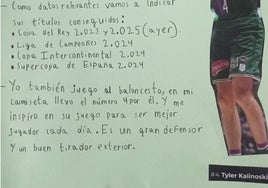 - Como datos relevantes vamos a indicar
sus títulos conseguidos:
• Copa del Rey 2.023 y 2.025 (ayer).
• Liga de Campeones 2.024
• Copa Intercontinental 2.024
• Supercopa de España 2.024
- Yo también juego al baloncesto, en mi
camiseta llevo el número 4 por él. Y me
inspiro en su juego para ser mejor
jugador cada día. Es un gran defensor
Y un buen tirador exterior.
4
#4 Tyler Kalinoski